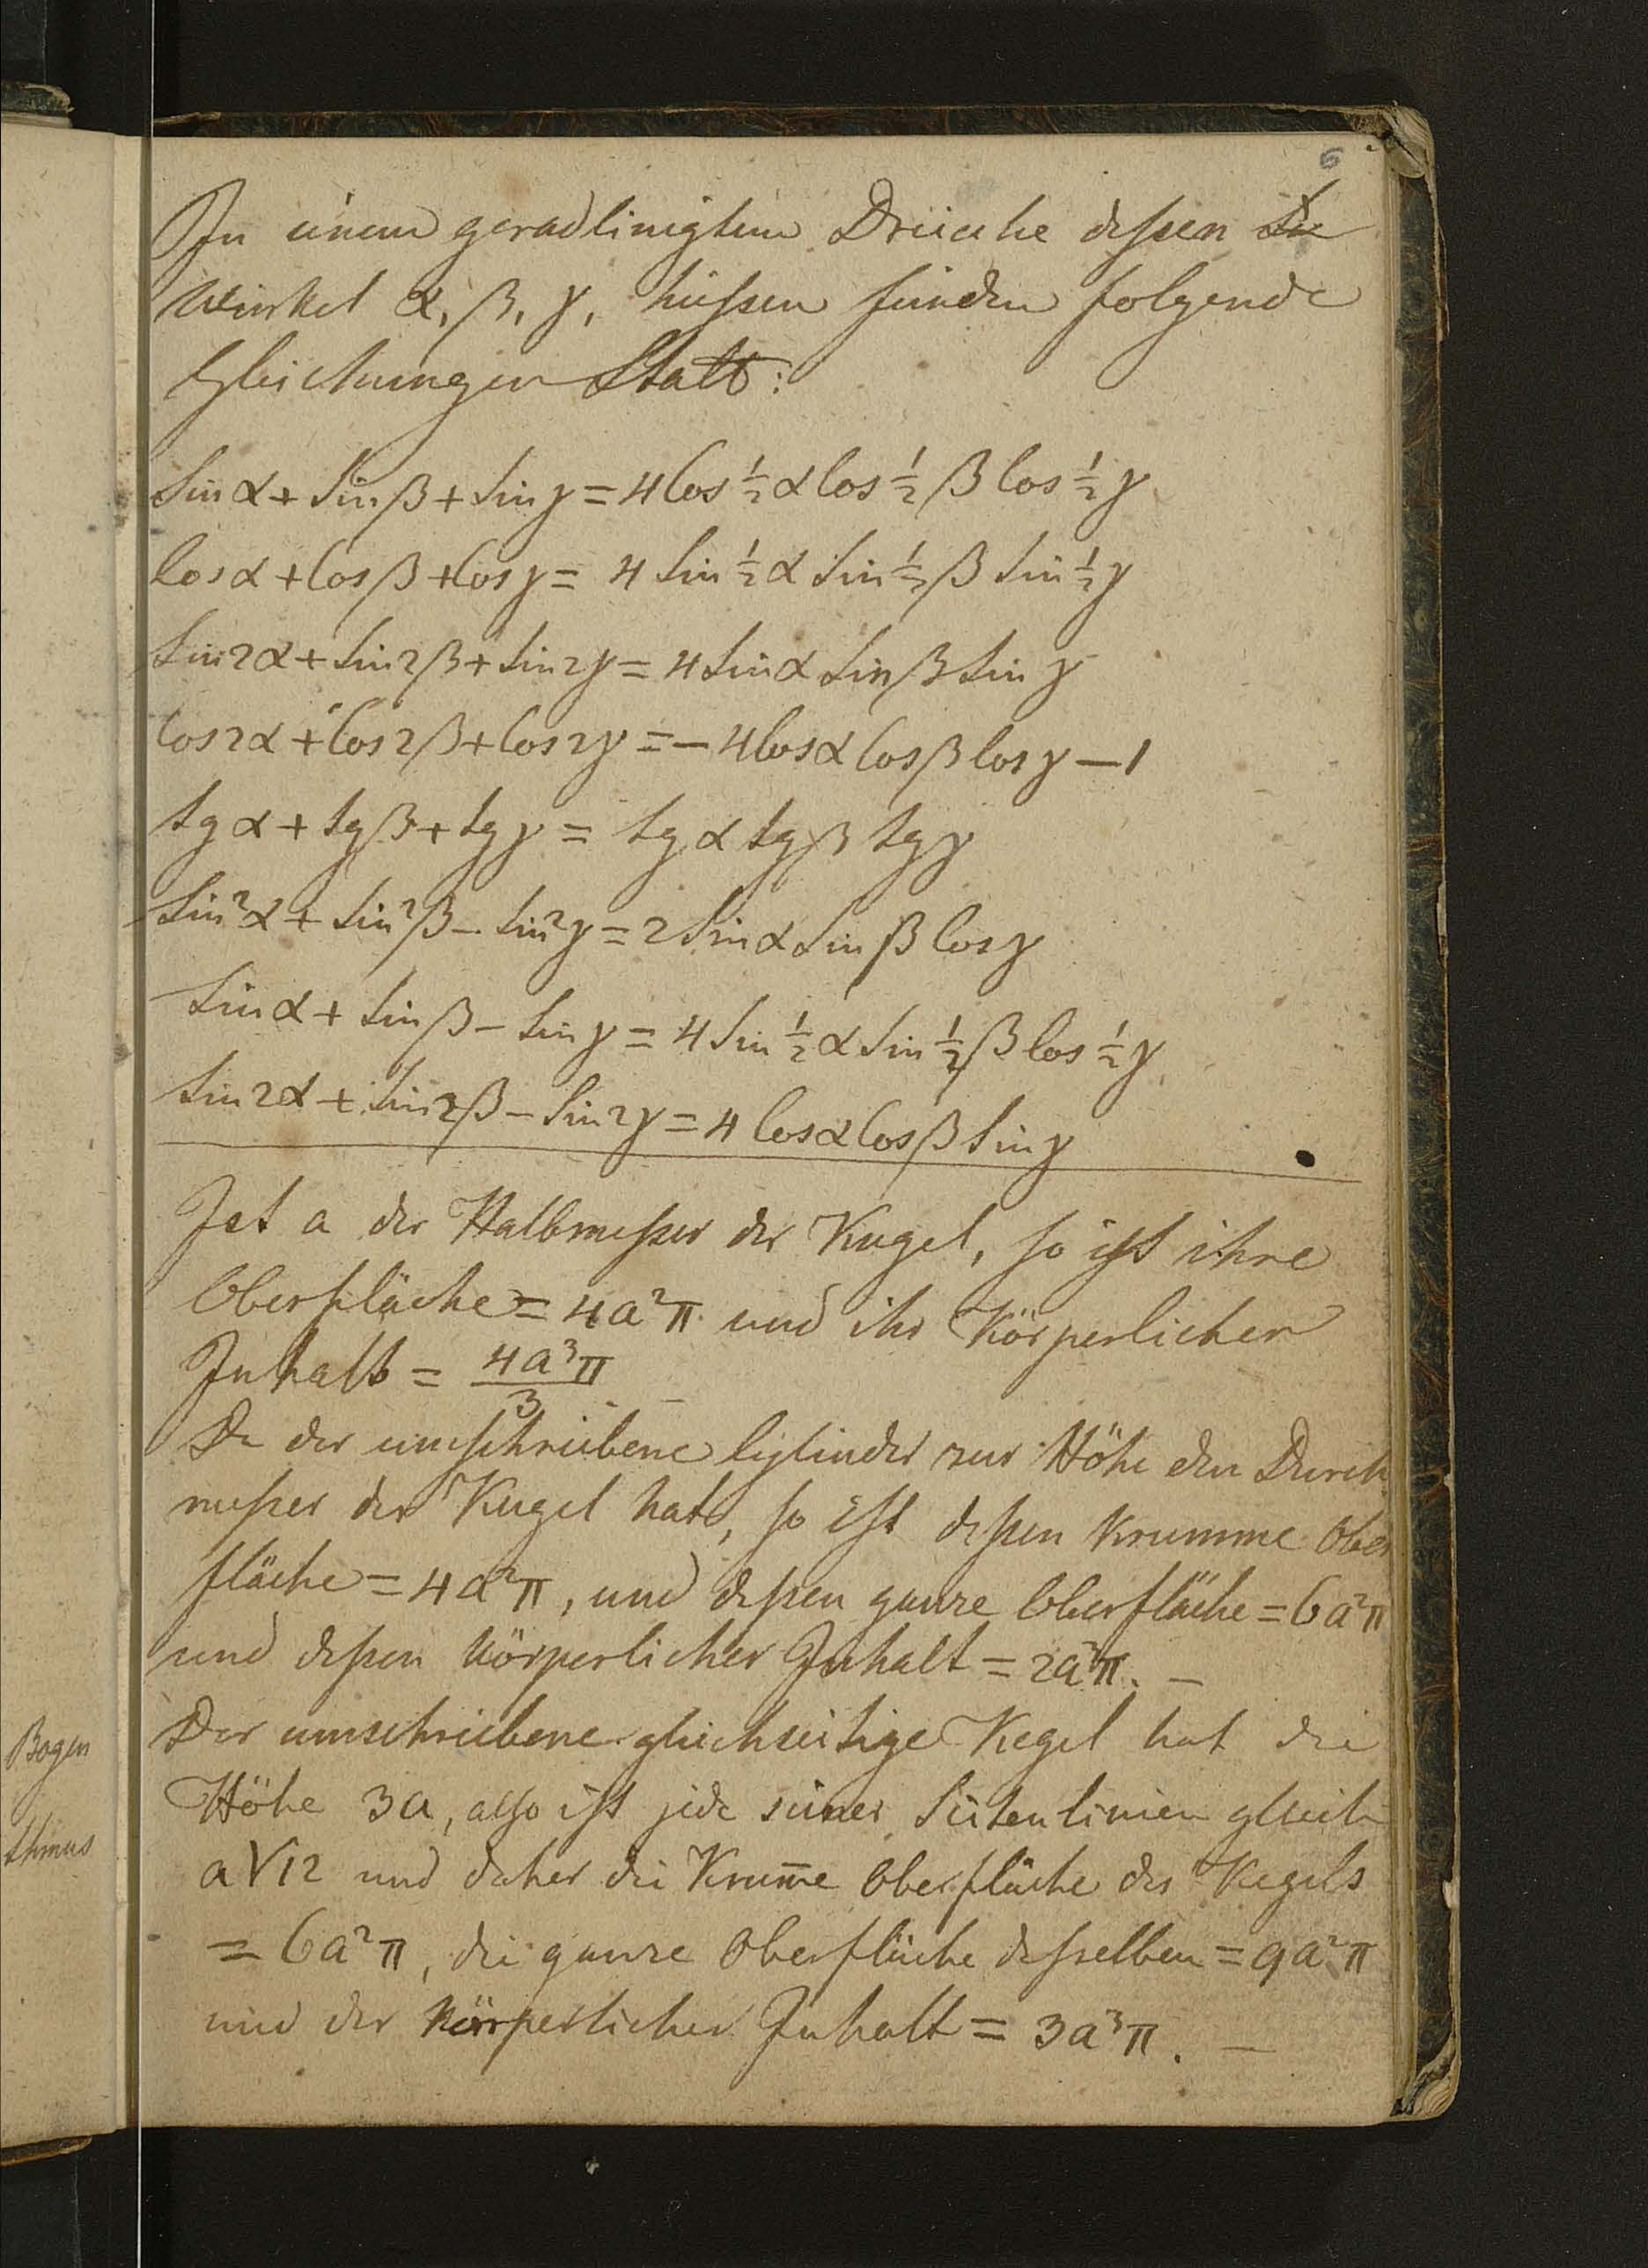 6
In einem geradlinigten Dreiecke deßen die
Winkel α, β, γ, heißen finden folgende
Gleichungen Statt:
Sin α + Sin β + Sin γ = 4 Cos ½ α Cos ½ β Cos ½ γ
Cos α + Cos β + Cos γ = 4 Sin ½ α Sin ½ β Sin ½ γ
Sin 2α + Sin 2β + Sin 2γ = 4 Sin α Sin β Sin γ
Cos 2α + Cos 2β + Cos 2γ = – 4 Cos α Cos β Cos γ – 1
tg α + tg β + tg γ = tg α tg β tg γ
Sin² α + Sin² β – Sin² γ = 2 Sin α Sin β Cos γ
Sin α + Sin β – Sin γ = 4 Sin ½ α Sin ½ β Cos ½ γ
Sin 2α + Sin 2β – Sin 2γ = 4 Cos α Cos β Sin γ
Ist a der Halbmeßer der Kugel, so ist ihre
Oberfläche = 4a²π und ihr Körperlicher
Inhalt = 4a³π/3 –
Da der umschriebene Cylinder zur Höhe den Durch
meßer der Kugel hat, so ist deßen Krumme Ober
fläche = 4a²π, und deßen ganze Oberfläche = 6a²π
und deßen körperlicher Inhalt = 2a³π. –
Der umschriebene gleichseitige Kegel hat die
Höhe 3a, also ist jede seiner Seitenlinien gleich
a√12 und daher die Krum̅e Oberfläche des Kegels
= 6a²π, die ganze Oberfläche desselben = 9a²π
und der Körperlicher Inhalt = 3a³π. –
Bogen
thmus